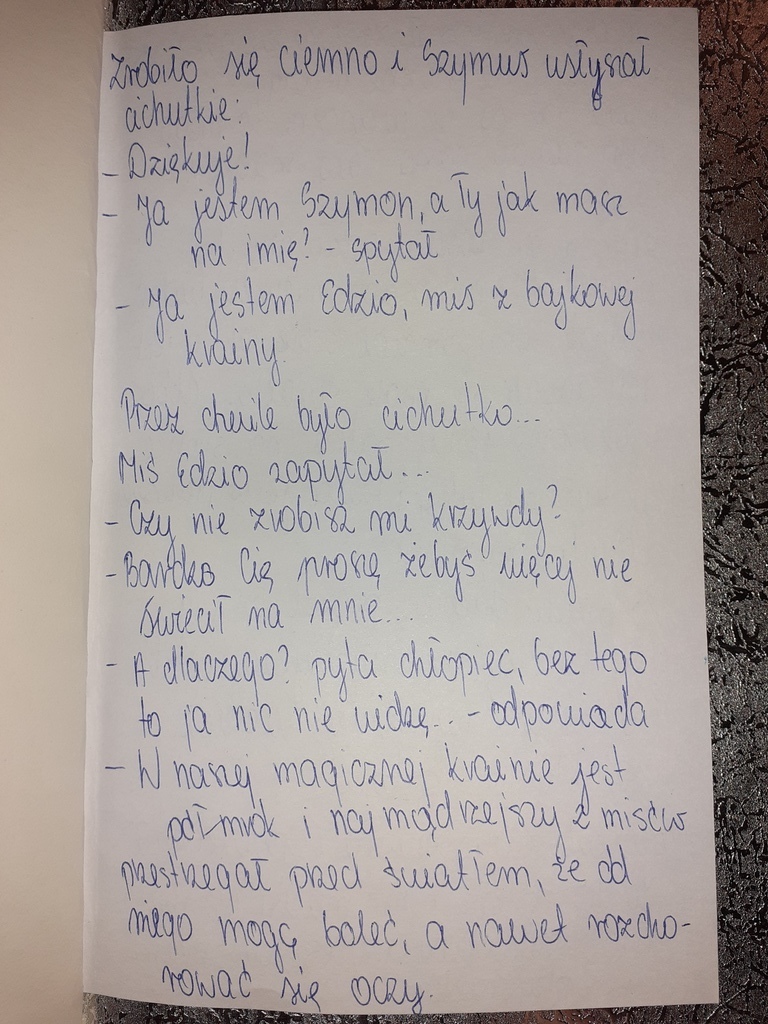 Zrobiło się ciemno i Szymus usłyszał
cichutkie:
- Dziękuje!
- Ja jestem Szymon, a Ty jak masz
na imię? - spytał
- Ja jestem Edzio, miś z bajkowej
krainy
Przez chwile było cichutko...
Miś Edzio zapytał...
- Czy nie zrobisz mi krzywdy?
- Bardzo Cię proszę żebyś więcej nie
świecił na mnie...
- A dlaczego? pyta chłopiec, bez tego
to ja nic nie widzę... - odpowiada
- W naszej magicznej krainie jest
półmrok i najmądrzejszy z misiów
przestrzegał przed światłem, że od
niego mogą boleć, a nawet rozcho-
rować się oczy.